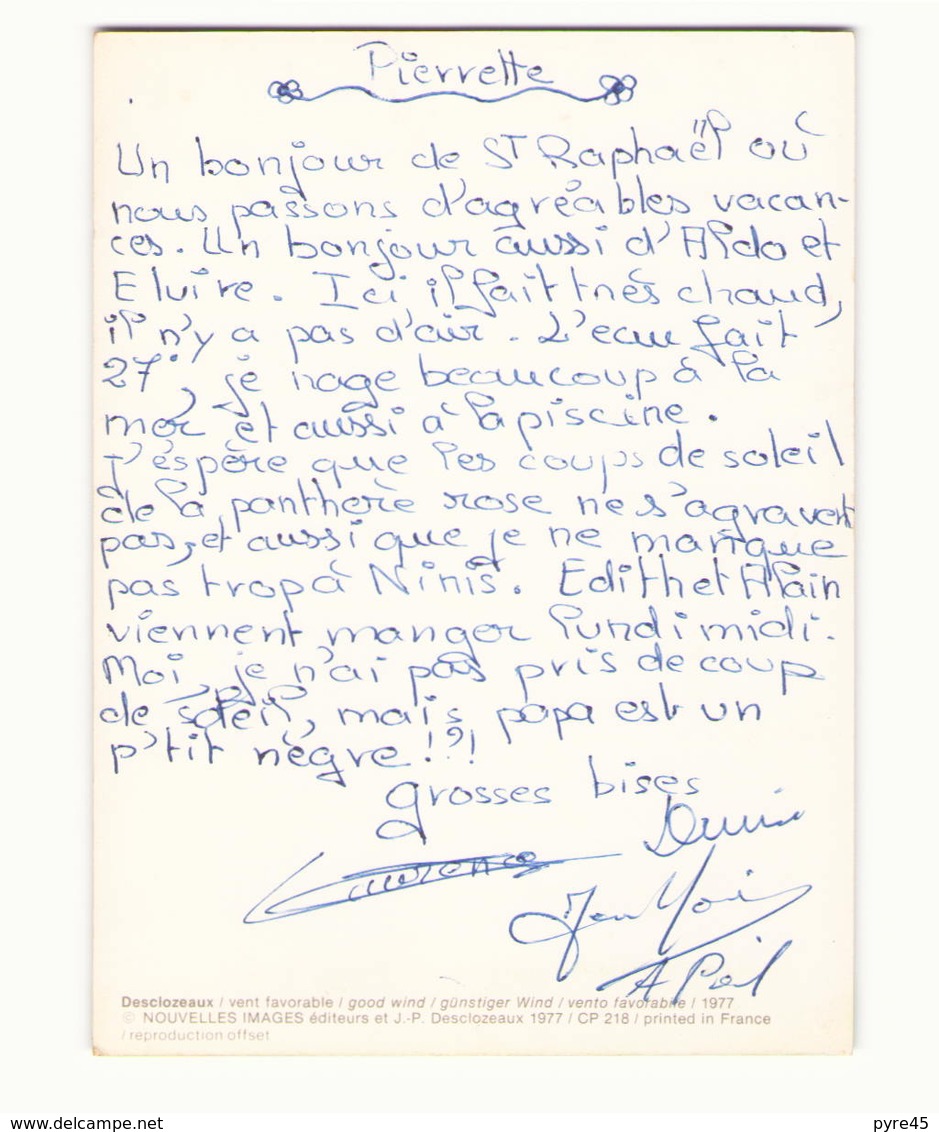 Pierrette
Un bonjour de St Raphaël où
nous passons d'agréables vacan-
ces. Un bonjour aussi d'Aldo et
Elvire. Ici il fait très chaud,
il n'y a pas d'air. L'eau fait
27°, je nage beaucoup à la
mer et aussi à la piscine.
J'espère que les coups de soleil
de la panthère rose ne s'agravent
pas, et aussi que je ne manque
pas trop à Ninis. Edith et Alain
viennent manger lundi midi.
Moi, je n'ai pas pris de coup
de soleil, mais papa est un
p'tit nègre!?!
grosses bises
Laurence
Desclozeaux / vent favorable / good wind / günstiger Wind / vento favorabile / 1977
© NOUVELLES IMAGES éditeurs et J.-P. Desclozeaux 1977 / CP 218 / printed in France
/ reproduction offset
delcampe.net
pyre45